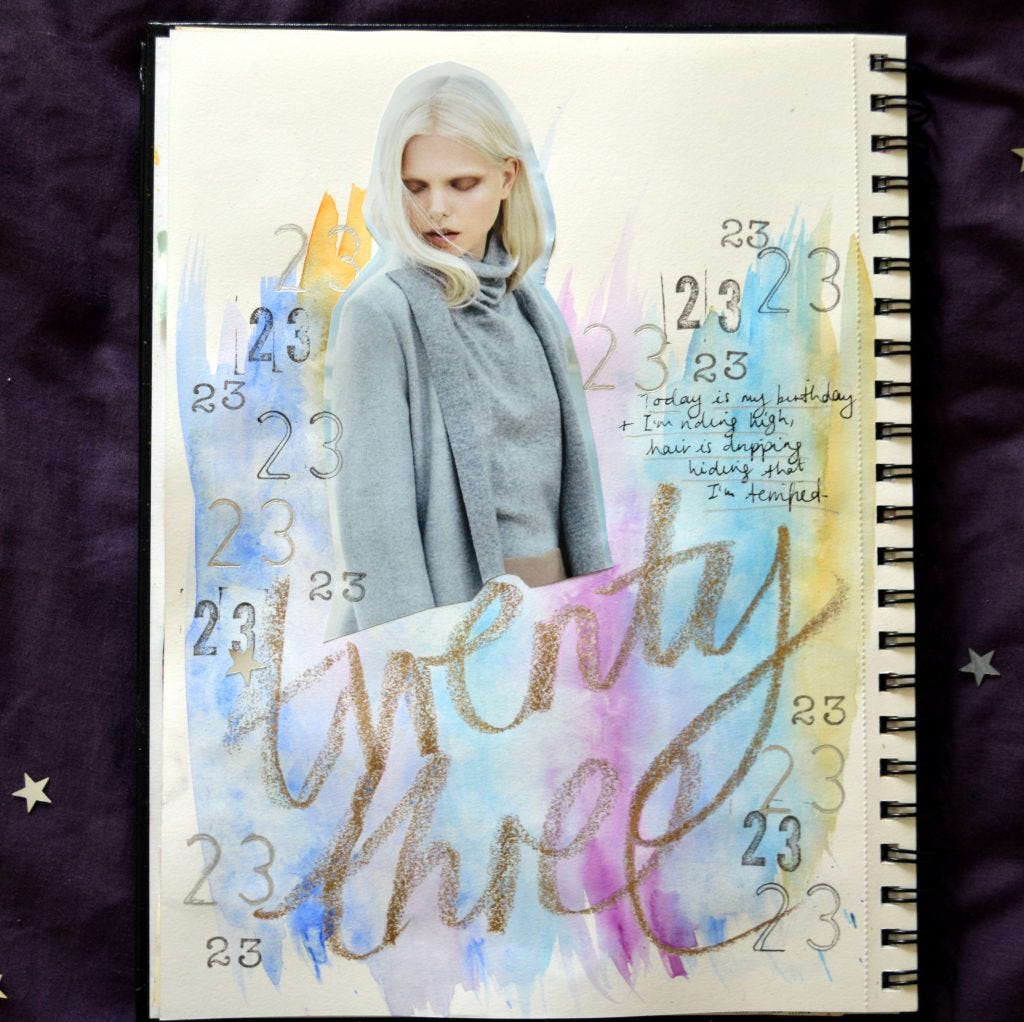 23
23
23
23
23
23
23
23
23
23
23
Today is my birthday
+ I'm riding high,
hair is dripping
hiding that
I'm terrified
23
23
23
twenty
three
23
23
23
23
23
23